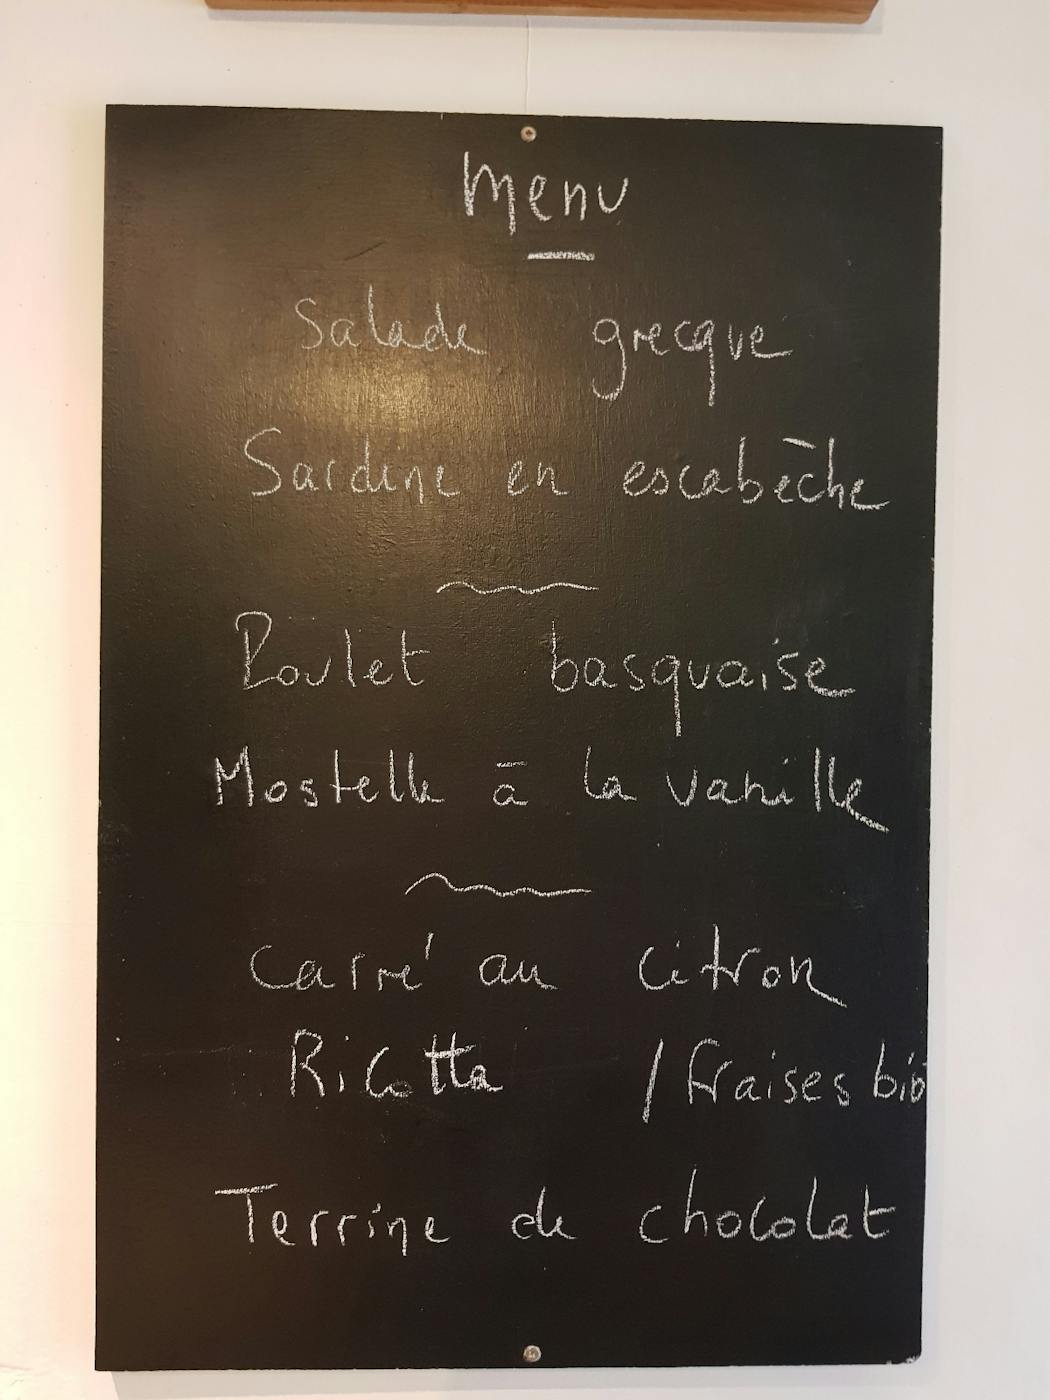 Menu
Salade grecque
Sardine en escabèche
Poulet basquaise
Mostelle à la vanille
Carré au citron
Ricotta / fraises bio
Terrine de chocolat